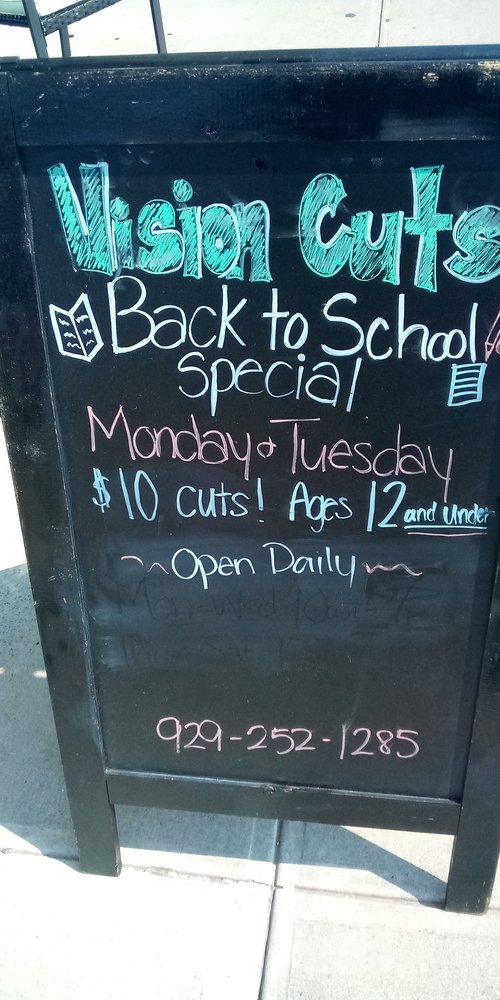 Vision Cuts
Back to School
Special
Monday & Tuesday
$10 cuts! Ages 12 and under
~~ Open Daily ~~
929-252-1285